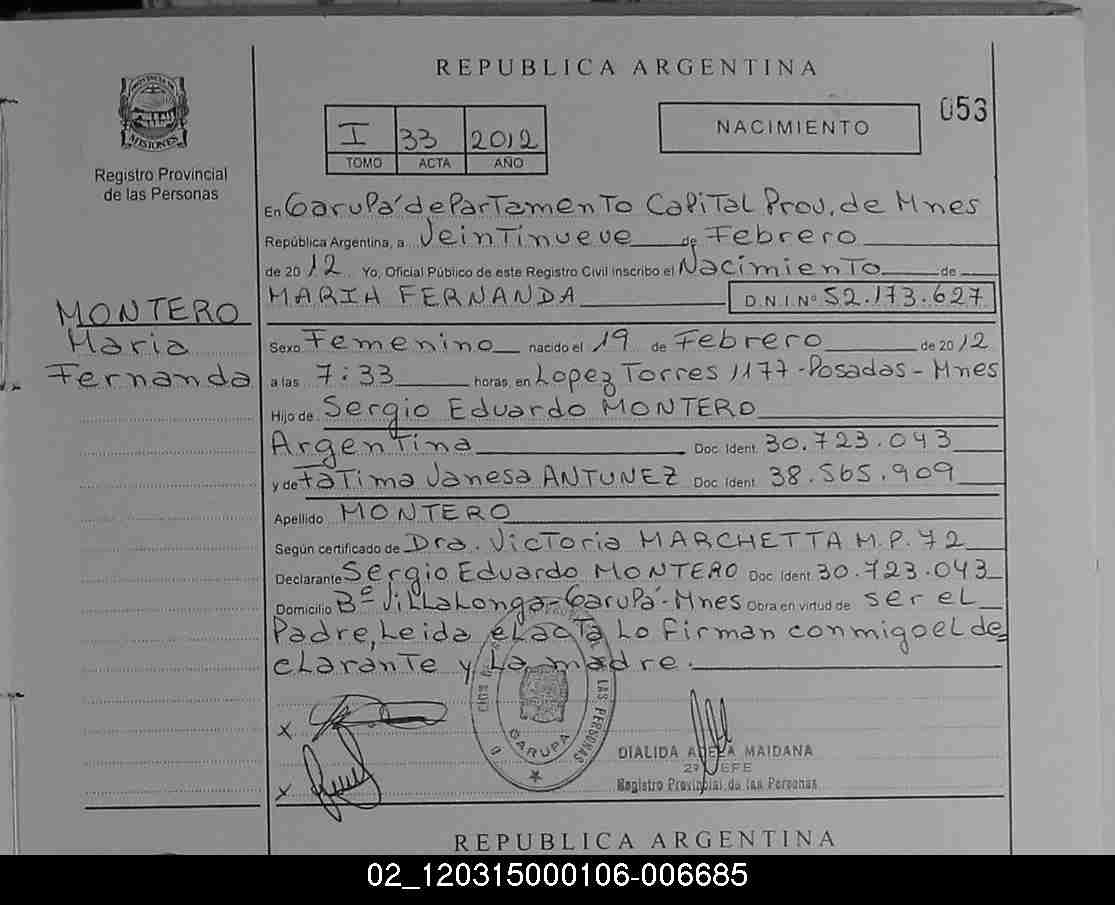 REPUBLICA ARGENTINA
053
I 33 2012
TOMO ACTA AÑO
NACIMIENTO
PROVINCIA DE
MISIONES
Registro Provincial
de las Personas
En Garupá departamento Capital Prov. de Mnes
República Argentina, a Veintinueve de Febrero
de 2012 Yo, Oficial Público de este Registro Civil inscribo el Nacimiento de
MARIA FERNANDA D.N.I. Nº 52.173.627
MONTERO
Maria
Fernanda
Sexo Femenino nacido el 19 de Febrero de 2012
a las 7:33 horas, en Lopez Torres 1177 - Posadas - Mnes
Hijo de Sergio Eduardo MONTERO
Argentina Doc. Ident. 30.723.043
y de Fatima Vanesa ANTUNEZ Doc. Ident. 38.565.909
Apellido MONTERO
Según certificado de Dra. Victoria MARCHETTA M.P. 72
Declarante Sergio Eduardo MONTERO Doc. Ident. 30.723.043
Domicilio Bº Villalonga - Garupá - Mnes Obra en virtud de ser el
Padre, Leida el acta lo firman conmigo el de=
clarante y la madre.
X
X
LAS PERSONAS
GARUPA
DIALIDA ADELA MAIDANA
JEFE
Registro Provincial de las Personas
REPUBLICA ARGENTINA
02_120315000106-006685